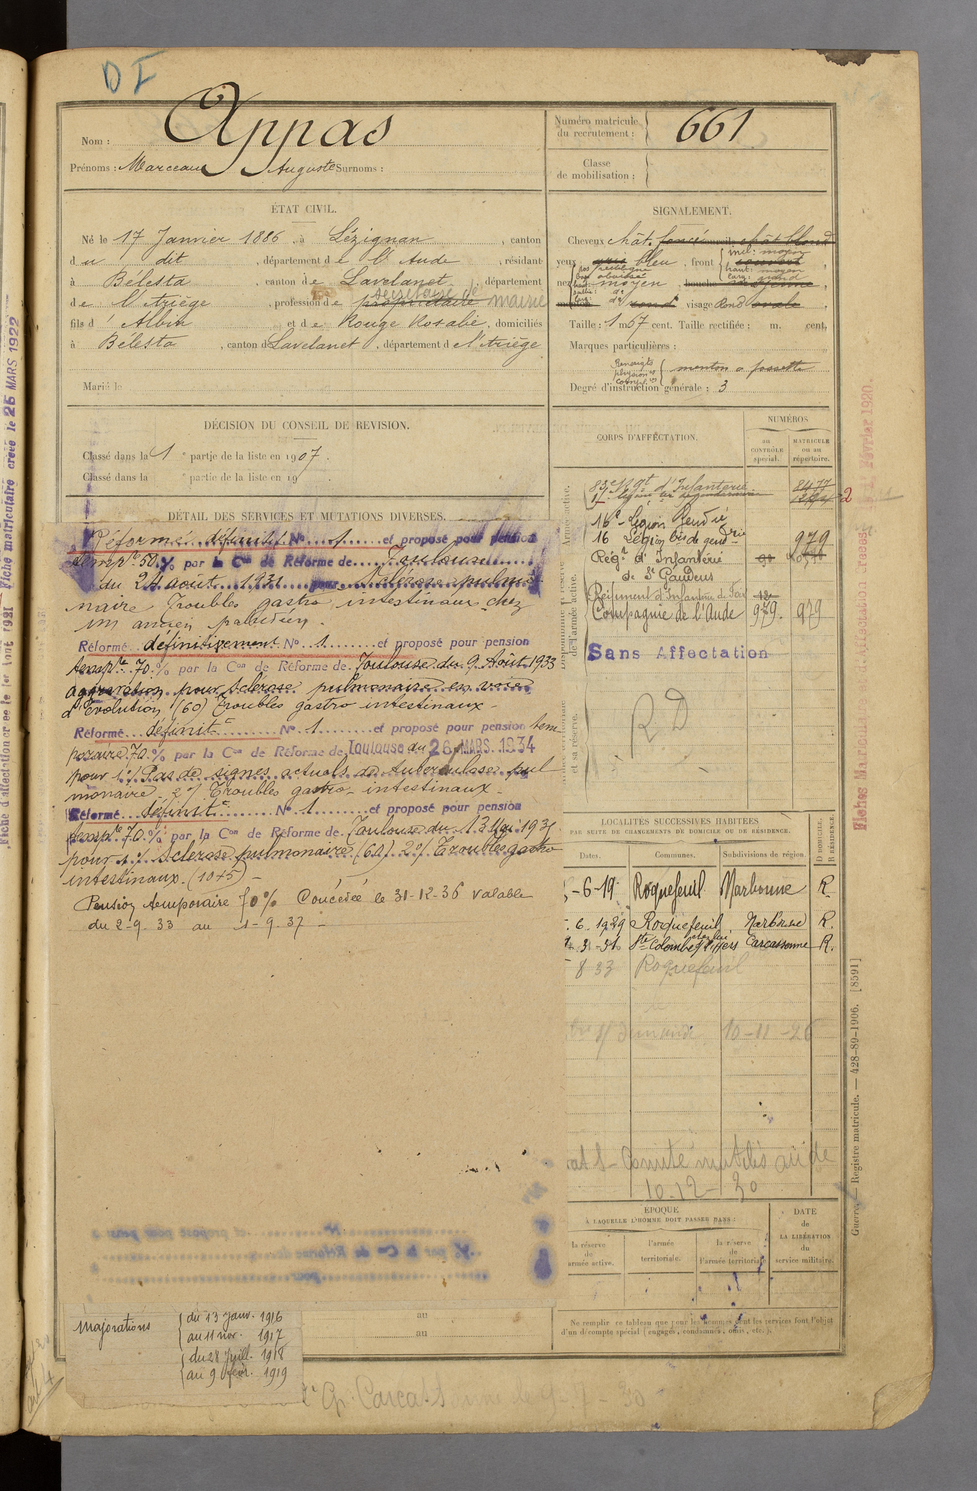 DI
Nom : Appas
Prénoms : Marceau Auguste Surnoms :
Numéro matricule du recrutement : 661
Classe de mobilisation :
ÉTAT CIVIL.
Né le 17 Janvier 1886, à Lézignan, canton
du dit, département de l'Aude, résidant
à Bélesta, canton de Lavelanet, département
de l'Ariège, profession de propriétaire secrétaire de mairie
fils d'Albin et de Rouge Rosalie, domiciliés
à Bélesta, canton d Lavelanet, département de l'Ariège
Marié le
DÉCISION DU CONSEIL DE REVISION.
Classé dans la 1e partie de la liste en 1907.
Classé dans la e partie de la liste en 19
DÉTAIL DES SERVICES ET MUTATIONS DIVERSES.
Réformé définit N° 1 et proposé pour pension
temp. 50 % par la Con de Réforme de Toulouse
du 24 août 1931 pour Sclérose pulmo
naire Troubles gastro intestinaux chez
un ancien paludéen.
Réformé définitivement N° 1 et proposé pour pension
tempre 70 % par la Con de Réforme de Toulouse du 9 Août 1933
aggravation pour sclérose pulmonaire en voie
d'évolution (60) Troubles gastro intestinaux -
Réformé définit N° 1 et proposé pour pension tem
poraire 70 % par la Con de Réforme de Toulouse du 26 MARS. 1934
pour 1°/ Pas de signes actuels de tuberculose pul
monaire - 2°/ Troubles gastro-intestinaux -
Réformé définit N° 1 et proposé pour pension
tempre 70 % par la Con de Réforme de Toulouse du 13
pour 1°/ Sclérose pulmonaire (60) 2°/ Troubles gastro
intestinaux. (10+5) -
Pension temporaire 70 % Concédée le 31-12-36 valable
du 2-9-33 au 1-9-37 -
majorations
du 13 janv. 1916
au 11 nov. 1917
du 28 juill. 1918
au 9 févr. 1919
SIGNALEMENT.
Cheveux chât. foncé sourcils chât blond
yeux bleu, front
nez moyen, bouche moyenne
menton rond visage Rond ovale
Taille : 1 m 67 cent. Taille rectifiée : m. cent.
Marques particulières :
menton à fossette
Degré d'instruction générale : 3
CORPS D'AFFECTATION.
NUMÉROS
AU CONTRÔLE spécial.
MATRICULE OU AU répertoire.
83e Régt d'Infanterie
16e Légion Gendrie
16 Légion bis de gendrie 979
Régt d'Infanterie
de St Gaudens
Régiment d'Infanterie de
Compagnie de l'Aude 979. 979
Sans Affectation
RD
LOCALITÉS SUCCESSIVES HABITÉES
PAR SUITE DE CHANGEMENTS DE DOMICILE OU DE RÉSIDENCE.
Dates. Communes. Subdivisions de région. D DOMICILE. R RÉSIDENCE.
-6-19 Roquefeuil Narbonne R.
6. 1929 Roquefeuil Narbonne R.
3-31 Ste Colombe s/l'Hers Carcassonne R.
8 33 Roquefeuil
10-11-26
Comité mutilés aude
10-12-30
ÉPOQUE
À LAQUELLE L'HOMME DOIT PASSER DANS :
la réserve de l'armée active.
l'armée territoriale.
la réserve de l'armée territoriale.
DATE de LA LIBÉRATION du service militaire.
au
au
Ne remplir ce tableau que pour les hommes dont les services font l'objet
d'un décompte spécial (engagés, condamnés, omis, etc.).
Carcassonne le 9-7-30
Guerre. — Registre matricule. — 428-89-1906. [8591]
Fiches Matricule et d'Affectation créées Février 1920.
Fiche matriculaire créée le 25 MARS 1922